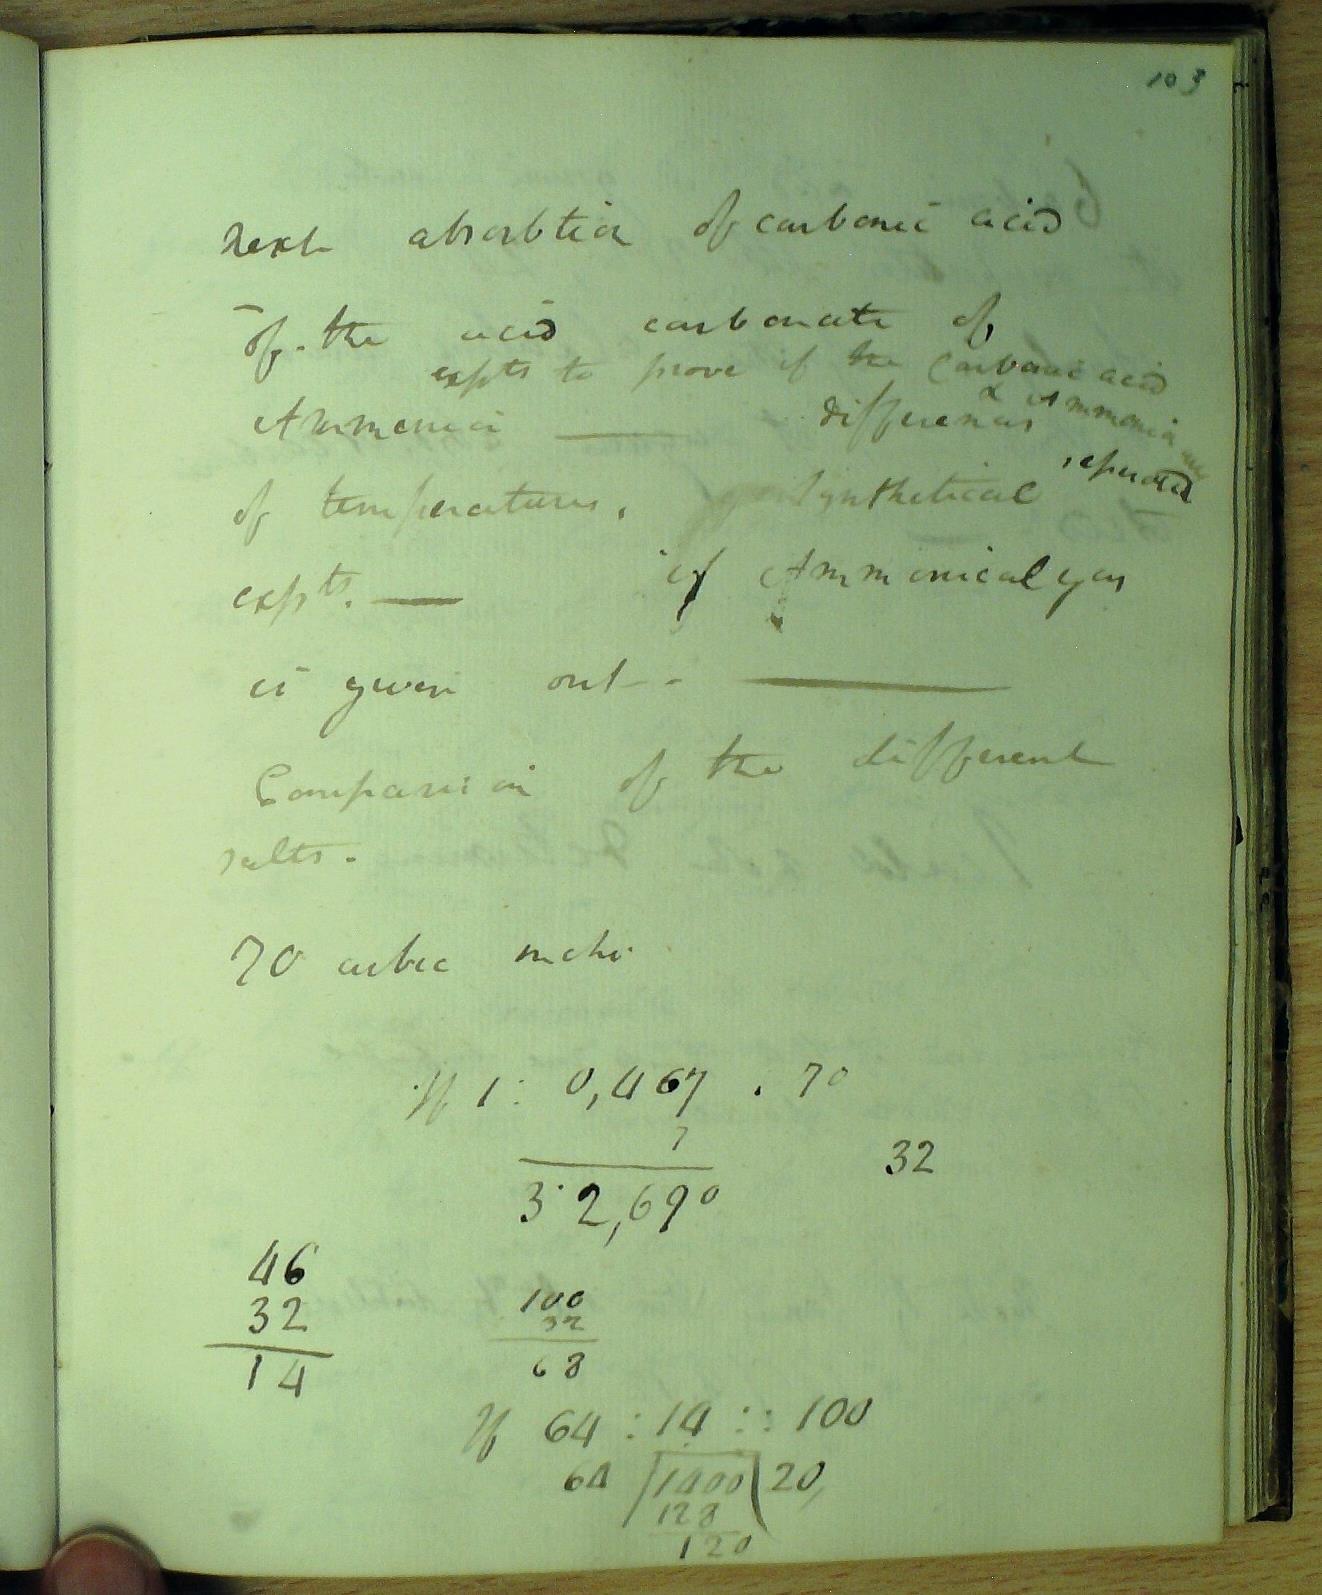 103
next absorbtion of carbonic acid
of the acid carbonate of
expts to prove if the Carbonic acid
& Ammonia are
Ammonia — differences
seperated
of temperatures, synthetical
expts. — if Ammonical gas
is given out - —
Comparison of the different
salts.
70 cubic inche
If 1 : 0,467 . 70
7
32
32,690
46
32
14
100
32
68
If 64 : 14 :: 100
64 1400 20,
128
120